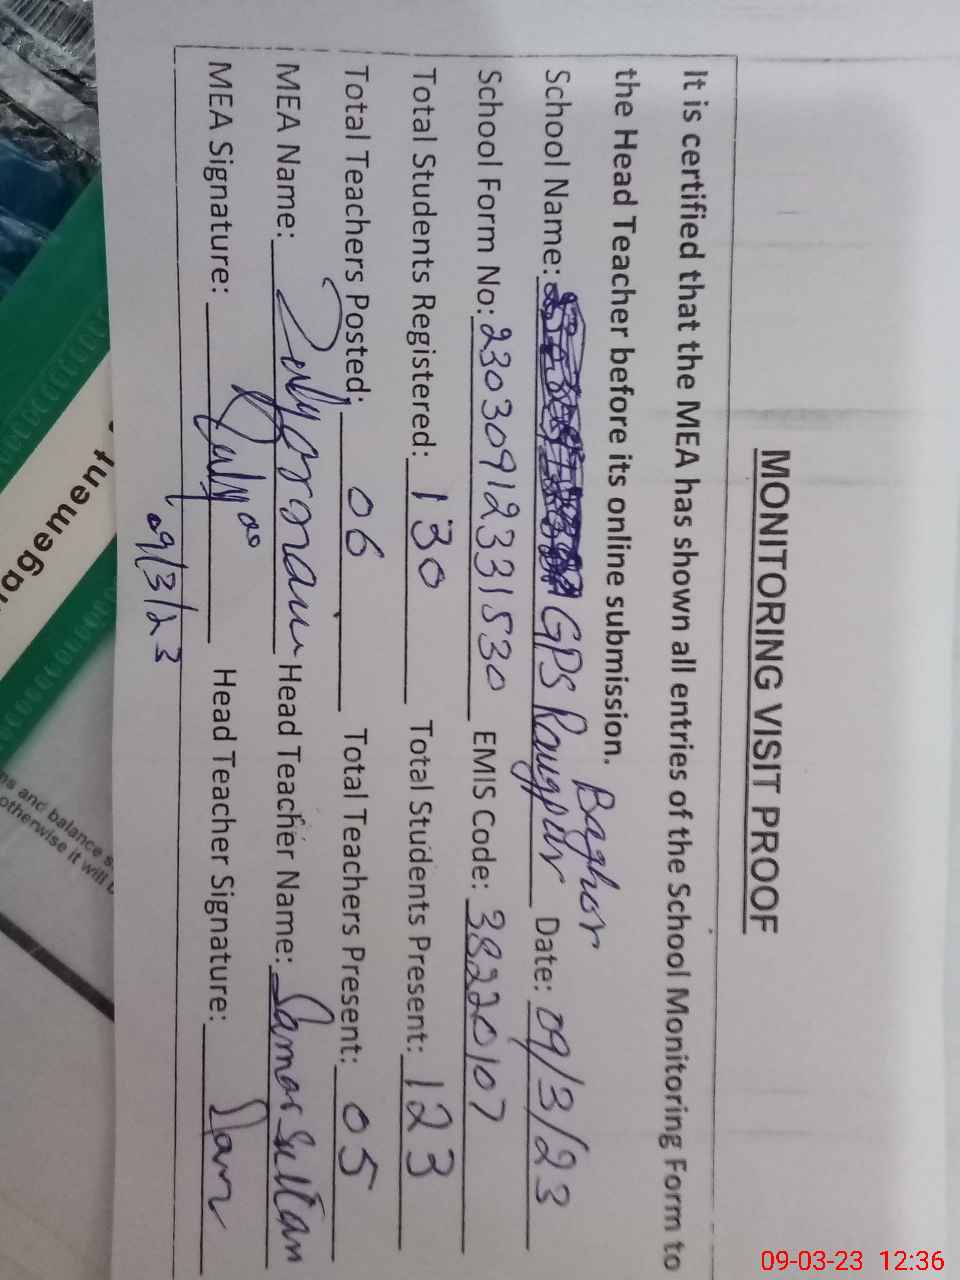 MONITORING VISIT PROOF
It is certified that the MEA has shown all entries of the School Monitoring Form to
the Head Teacher before its online submission.
School Name: GPS Rangpur Baghor Date: 09/3/23
School Form No: 23030912331530 EMIS Code: 38220107
Total Students Registered: 130 Total Students Present: 123
Total Teachers Posted: 06 Total Teachers Present: 05
MEA Name: Head Teacher Name: Samar Sultan
MEA Signature: Head Teacher Signature: Sam
09/3/23
agement
ns and balance s
otherwise it will b
09-03-23 12:36